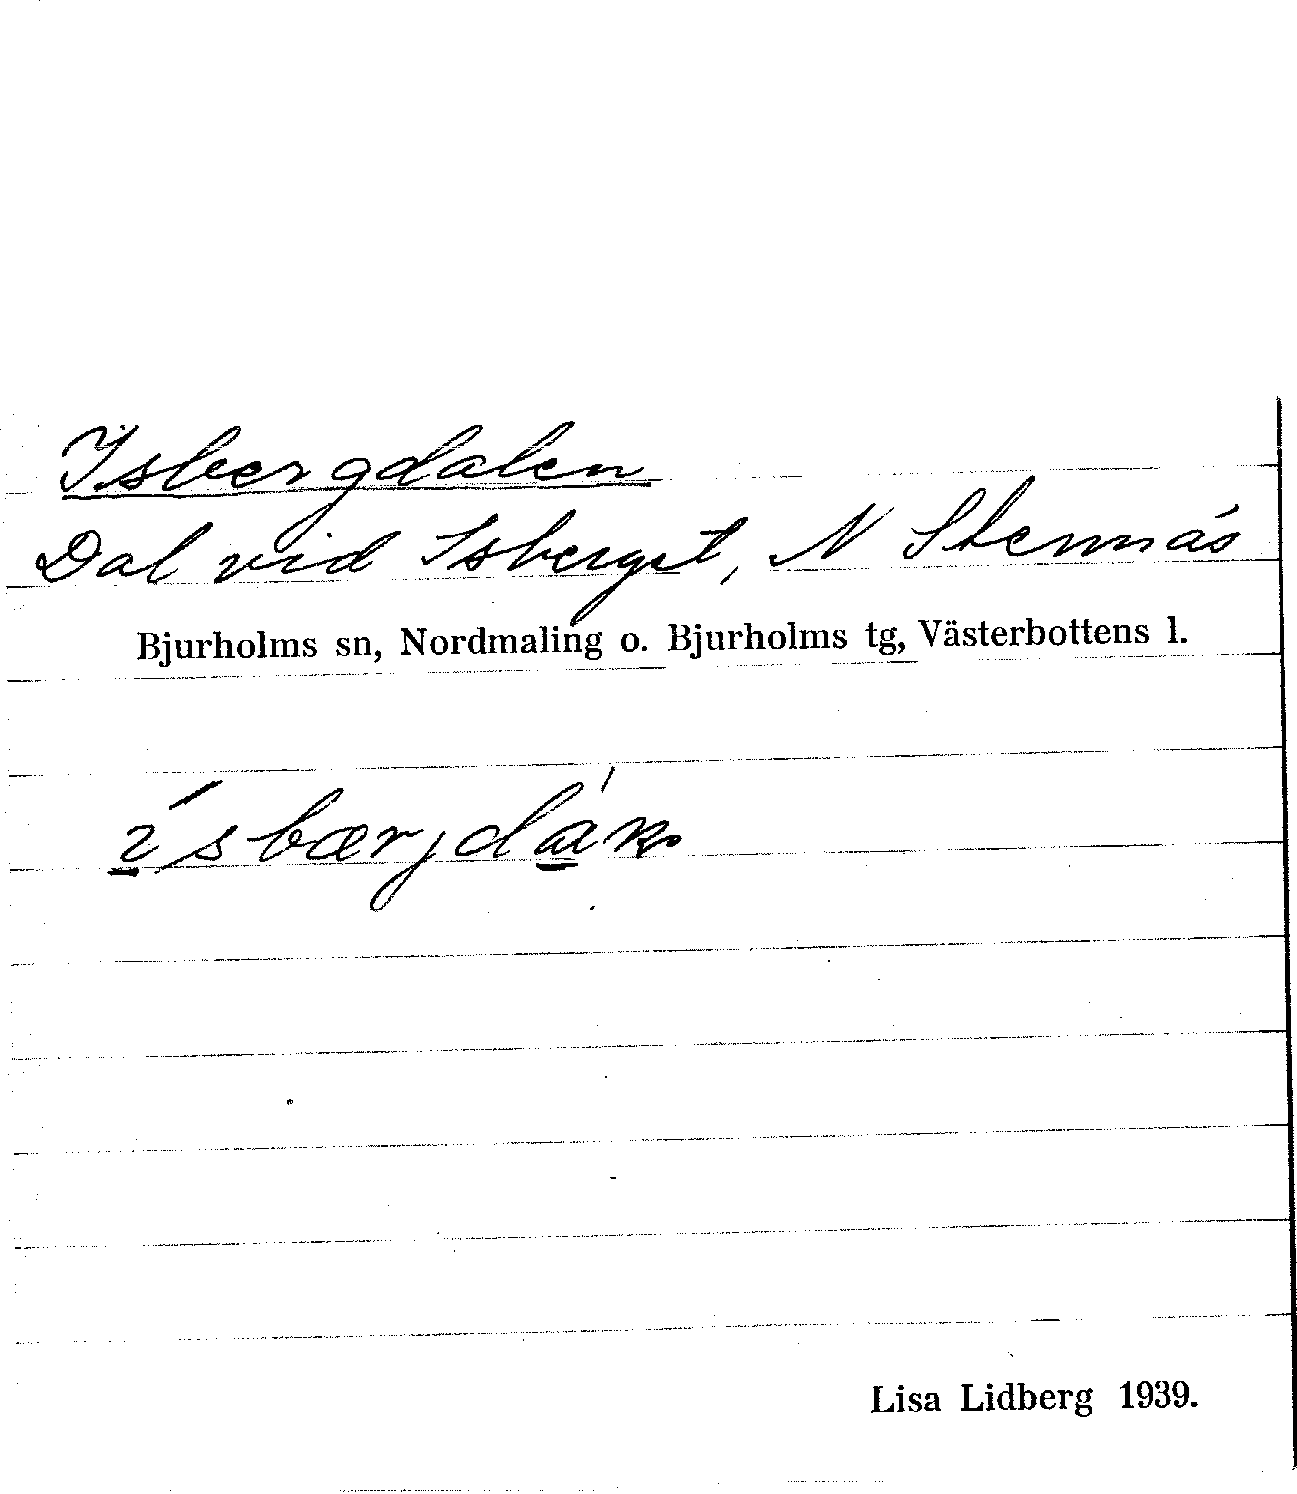 Isbergdalen
Dal vid Isberget, N Stennäs
Bjurholms sn, Nordmaling o. Bjurholms tg, Västerbottens l.
Lisa Lidberg 1939.